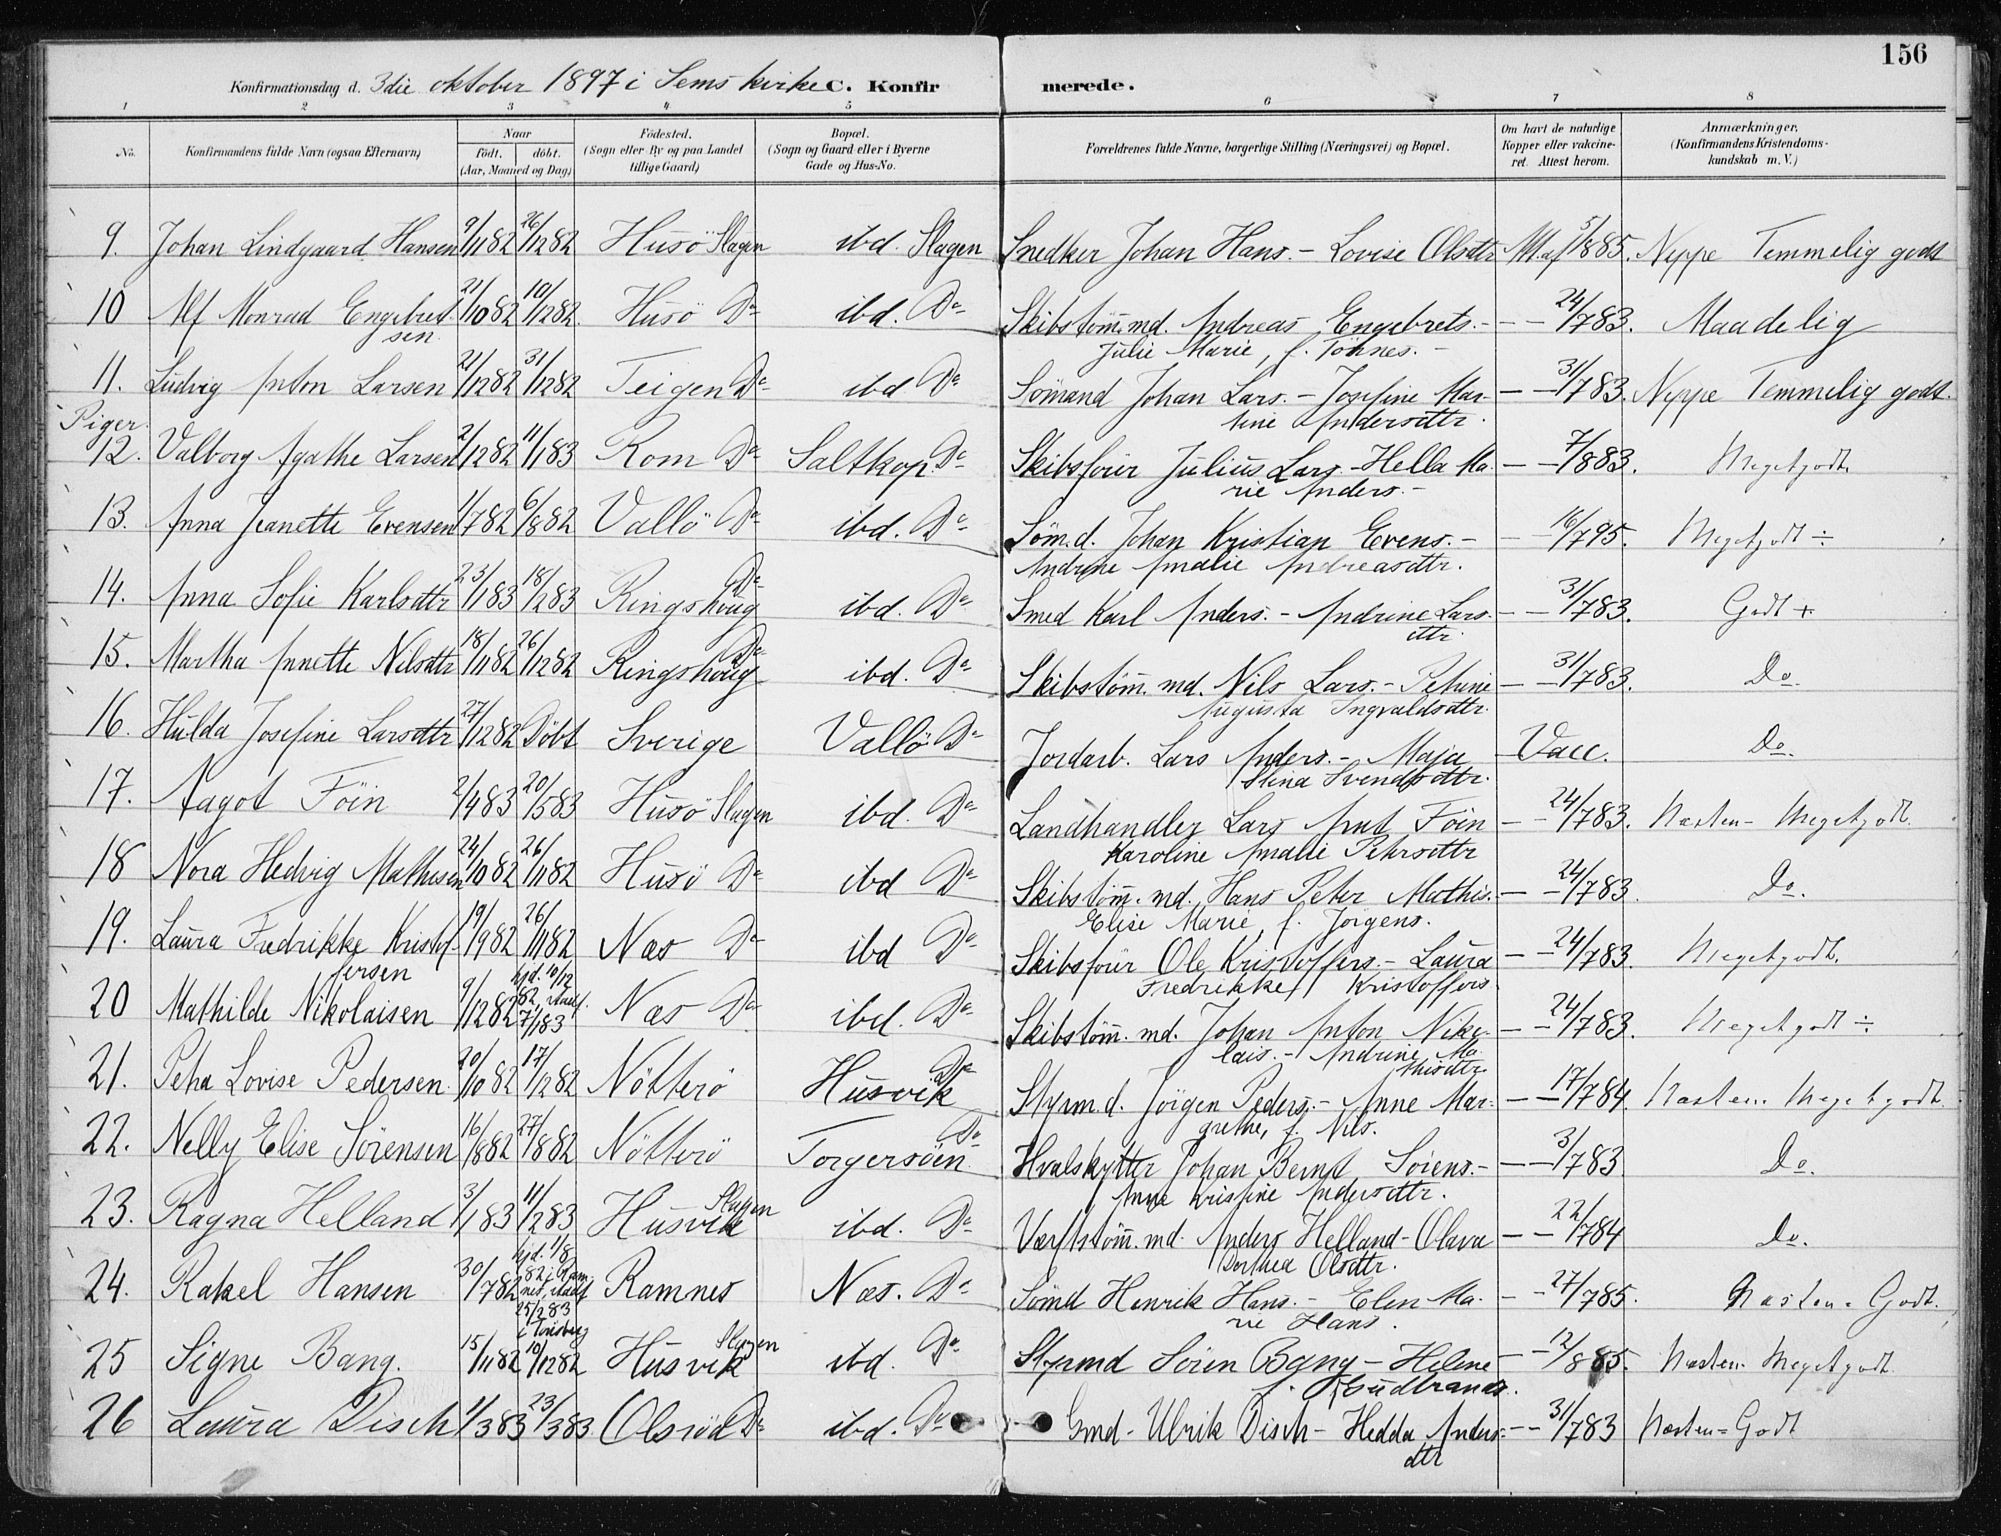 156
Konfirmationsdag d. 3die oktober 1897 i Sems kirke C. Konfirmerede.
1 2 3 4 5 6 7 8
No. Konfirmandens fulde Navn (ogsaa Efternavn) Naar født. døbt. (Aar, Maaned og Dag) Fødested. (Sogn eller By og paa Landet tillige Gaard) Bopæl. (Sogn og Gaard eller i Byerne Gade og Hus-No. Forældrenes fulde Navne, borgerlige Stilling (Næringsvei) og Bopæl. Om havt de naturlige Kopper eller vakcineret. Attest herom. Anmærkninger. (Konfirmandens Kristendomskundskab m. V.)
9. Johan Lindgaard Hansen 9/11 82 26/12 82 Husö Slagen ibd. Slagen Snedker Johan Hans. - Lovise Olsdtr Att. af 5/8 85. Neppe Temmelig godt
10 Alf Monrad Engebret- 21/10 82 10/12 82 Husö Do ibd. Do Skibstöm̄. md. Andreas Engebrets. - - 24/7 83. Maadelig
sen Julie Marie, f. Tönnes. -
11. Ludvig Anton Larsen 21/12 82 31/12 82 Teigen Do ibd Do Sömand Johan Lars. - Josefine Mar- - 31/7 83. Neppe Temmelig godt.
tine Andersdtr.
Piger.
12. Valborg Agathe Larsen 2/12 82 11/1 83 Rom Do Saltkop. Do Skibsförer Julius Lars. - Hella Ma- - 7/8 83. Megetgodt.
rie Anders. -
13. Anna Jeanette Evensen 1/7 82 6/8 82 Vallö Do ibd. Do Söm.d. Johan Kristian Evens. - - 16/7 95. Megetgodt ÷
Andrine Amalie Andreasdtr.
14. Anna Sofie Karlsdtr 23/1 83 18/2 83 Ringshoug Do ibd. Do Smed Karl Anders. - Andrine Lars- - 31/7 83. Godt +
dtr.
15. Martha Annette Nilsdtr 18/11 82 26/12 82 Ringshoug Do ibd. Do Skibstöm̄. md. Nils Lars. - Petrine - 31/7 83. Do.
Augusta Ingvaldsdtr.
16. Hulda Josefine Larsdtr 27/12 82 Döbt Sverige Vallö Do Jordarb. Lars Anders. - Maja - Vacc. Do.
Stina Svendsdtr.
17. Aagot Föin 2/4 83 20/5 83 Husö Slagen ibd. Do Landhandler Lars Arnt Föin - 24/7 83. Næsten - Megetgodt.
Karoline Amalie Petersdtr
18 Nora Hedvig Mathisen 24/10 82 26/11 82 Husö Do ibd Do Skibstöm̄. md. Hans Peter Mathis. - 24/7 83 Do.
Elise Marie, f. Jorgens.
19. Laura Fredrikke Kristof- 19/9 82 26/11 82 Næs Do ibd Do Skibsförer Ole Kristoffers. - Laura - 24/7 83. Megetgodt.
fersen Fredrikke Kristoffers.
20 Mathilde Nikolaisen 9/12 82 hjd. 10/12 82, stadf. 7/1 83 Næs Do ibd. Do Skibstöm̄. md. Johan Anton Niko- - 24/7 83. Megetgodt ÷
lais. - Andrine Ma-
thisdtr.
21. Petra Lovise Pedersen 20/10 82 17/12 82 Nötterö Husvik Do Styrm.d. Jörgen Peders. - Anne Mar- - 17/7 84. Næsten - Megetgodt.
grethe, f. Nils.
22. Nelly Elise Sörensen 16/8 82 27/8 82 Nötterö Torgersöen Do Hvalskytter Johan Bernt Sörens. - - 3/7 83 Do.
Anne Kristine Andersdtr.
23. Ragna Helland 3/1 83 11/2 83 Husvik Slagen ibd. Do Værftstöm̄. md. Anders Helland - Olava - 22/7 84 Do.
Dorthea Olsdtr.
24. Rakel Hansen 30/7 82 hjd. 1/8 82 i Ramnes, stadf. 25/2 83 i Tönsberg Ramnes Næs. Do Sömd Henrik Hans. - Elen Ma- - 27/7 85. Næsten - Godt.
rie Hans.
25 Signe Bang. 15/11 82 10/12 82 Husvik Slagen ibd. Do Styrmd Sören Bang - Helene - 12/8 85. Næsten - Megetgodt.
Gudbrands.
26 Laura Disch 1/3 83 23/3 83 Olsröd Do ibd. Do Gmd - Ulrik Disch - Hedda Anders- - 31/7 83 Næsten - Godt
dtr